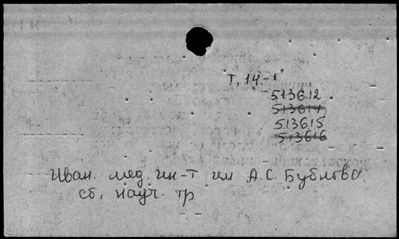 Т. 14-1
513612
513614
513615
513616
Иван. мед. ин-т им А.С. Бубнова
сб. науч. тр